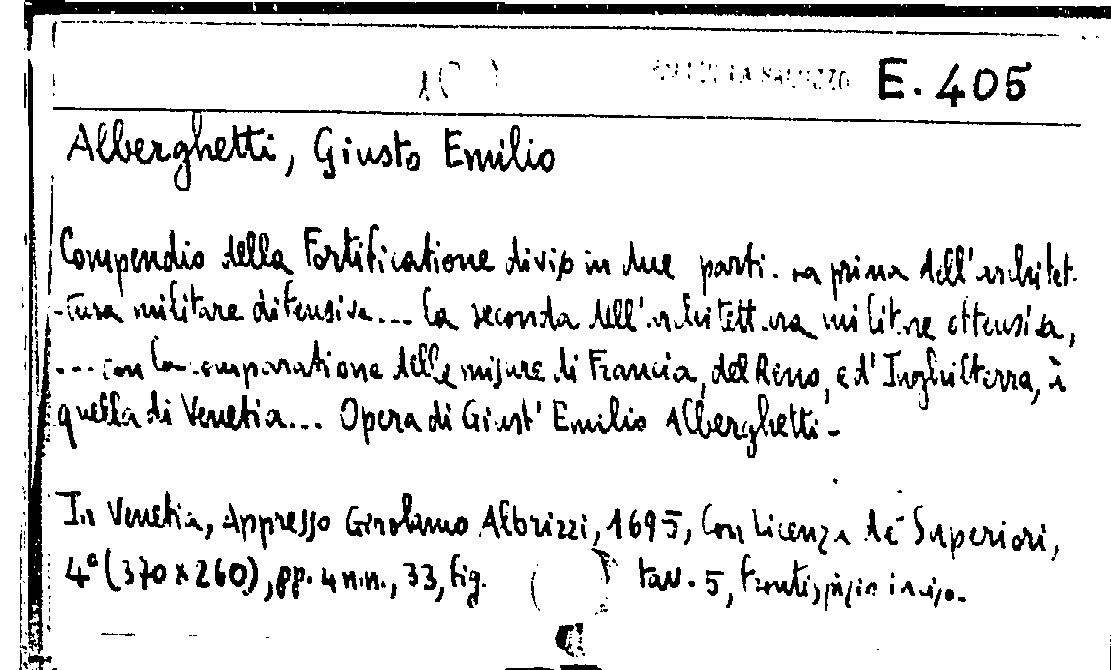 E. 405
Alberghetti, Giusto Emilio
Compendio della Fortificatione diviso in due parti. La prima dell'architet-
-tura militare difensiva... la seconda dell'architettura militare offensiva,
... con la comparatione delle misure di Francia, del Reno, e d'Inghilterra, à
quella di Venetia... Opera di Giust' Emilio Alberghetti-
In Venetia, Appresso Girolamo Albrizzi, 1695, Con Licenza de' Superiori,
4° (370x260), pp. 4 n.n., 33, fig. tav. 5, frontispizio inciso.